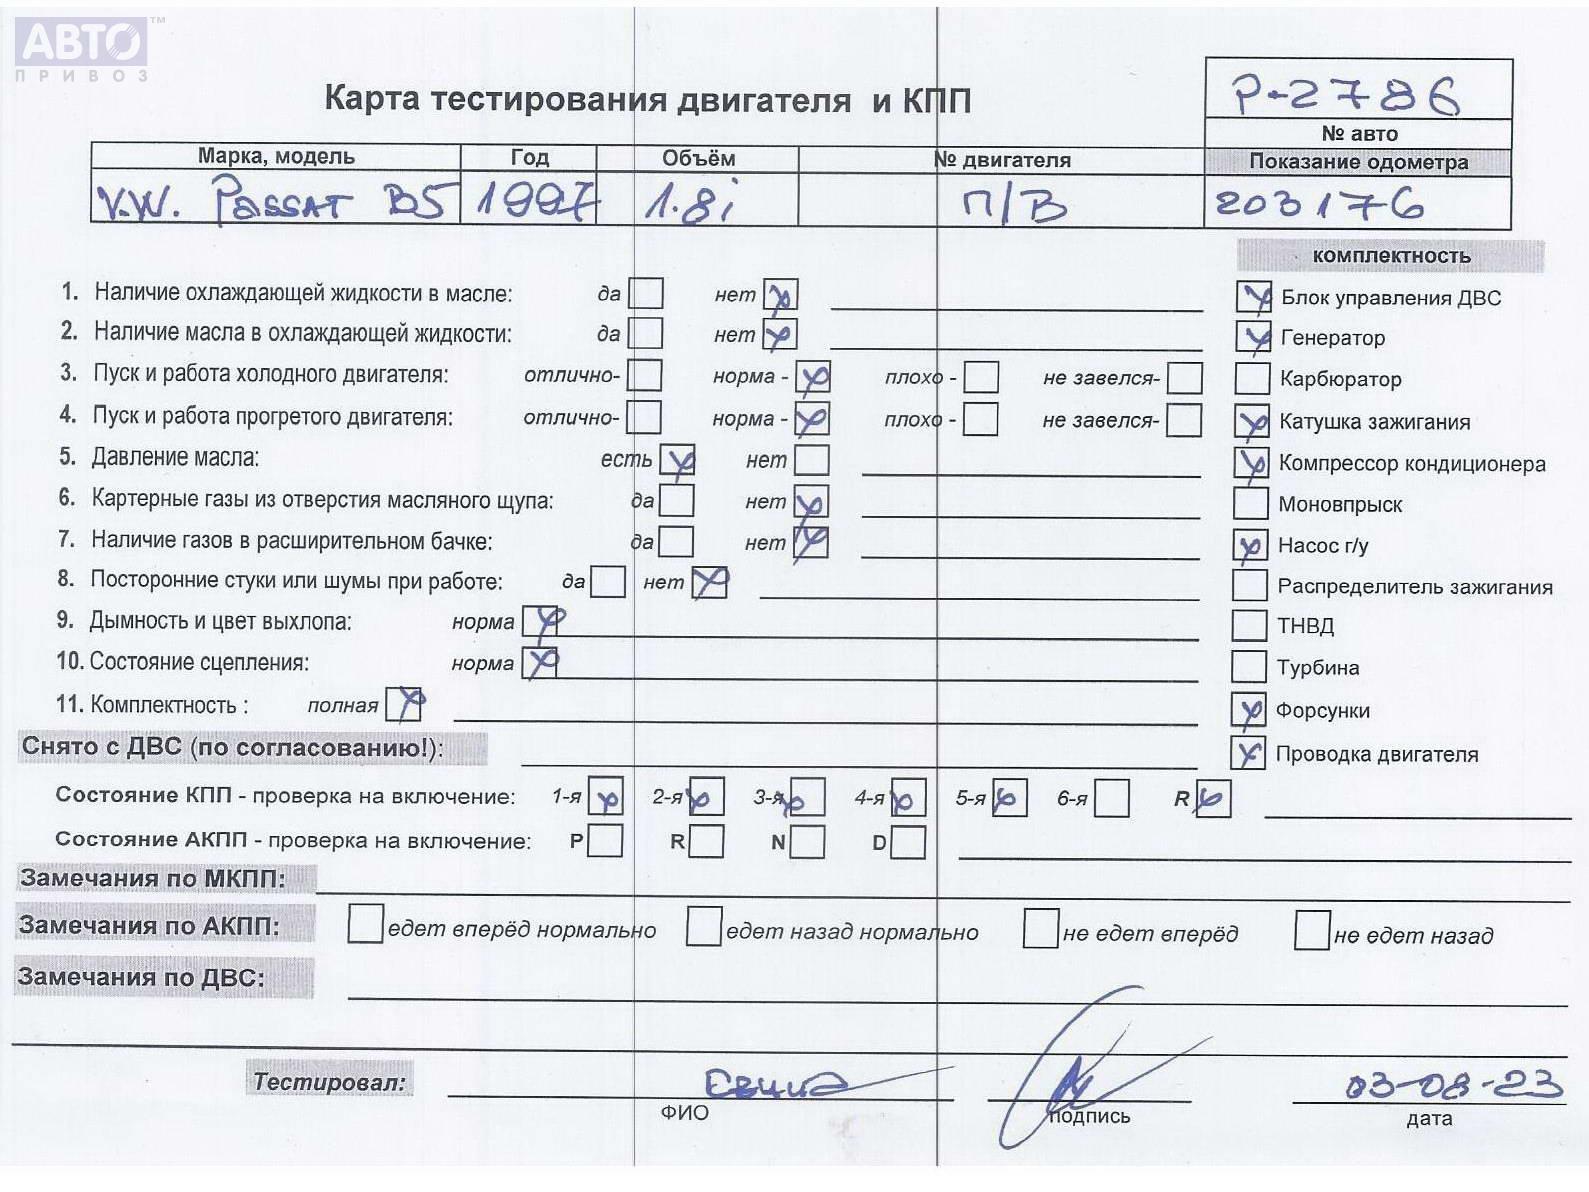 АВТО™
ПРИВОЗ
Карта тестирования двигателя и КПП
P-2786
№ авто
Марка, модель Год Объём № двигателя Показание одометра
V.W. Passat B5 1997 1.8i П/В 203176
комплектность
1. Наличие охлаждающей жидкости в масле: да нет
2. Наличие масла в охлаждающей жидкости: да нет
3. Пуск и работа холодного двигателя: отлично- норма - плохо - не завелся-
4. Пуск и работа прогретого двигателя: отлично- норма - плохо - не завелся-
5. Давление масла: есть нет
6. Картерные газы из отверстия масляного щупа: да нет
7. Наличие газов в расширительном бачке: да нет
8. Посторонние стуки или шумы при работе: да нет
9. Дымность и цвет выхлопа: норма
10. Состояние сцепления: норма
11. Комплектность : полная
Блок управления ДВС
Генератор
Карбюратор
Катушка зажигания
Компрессор кондиционера
Моновпрыск
Насос г/у
Распределитель зажигания
ТНВД
Турбина
Форсунки
Проводка двигателя
Снято с ДВС (по согласованию!):
Состояние КПП - проверка на включение: 1-я 2-я 3-я 4-я 5-я 6-я R
Состояние АКПП - проверка на включение: P R N D
Замечания по МКПП:
Замечания по АКПП: едет вперёд нормально едет назад нормально не едет вперёд не едет назад
Замечания по ДВС:
Тестировал: 03-08-23
ФИО подпись дата